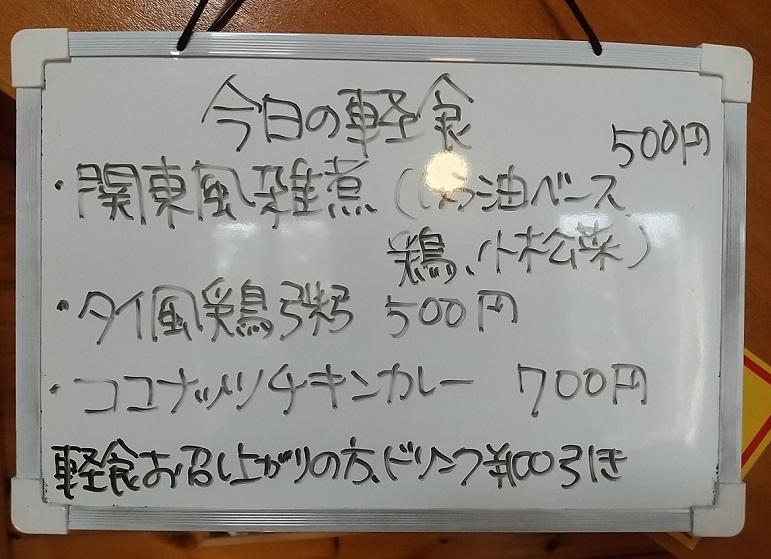 今日の軽食
500円
・関東風雑煮(油ベース
鶏、小松菜)
・タイ風鶏粥 500円
・ココナッツチキンカレー 700円
軽食お召し上がりの方、ドリンク¥100引き